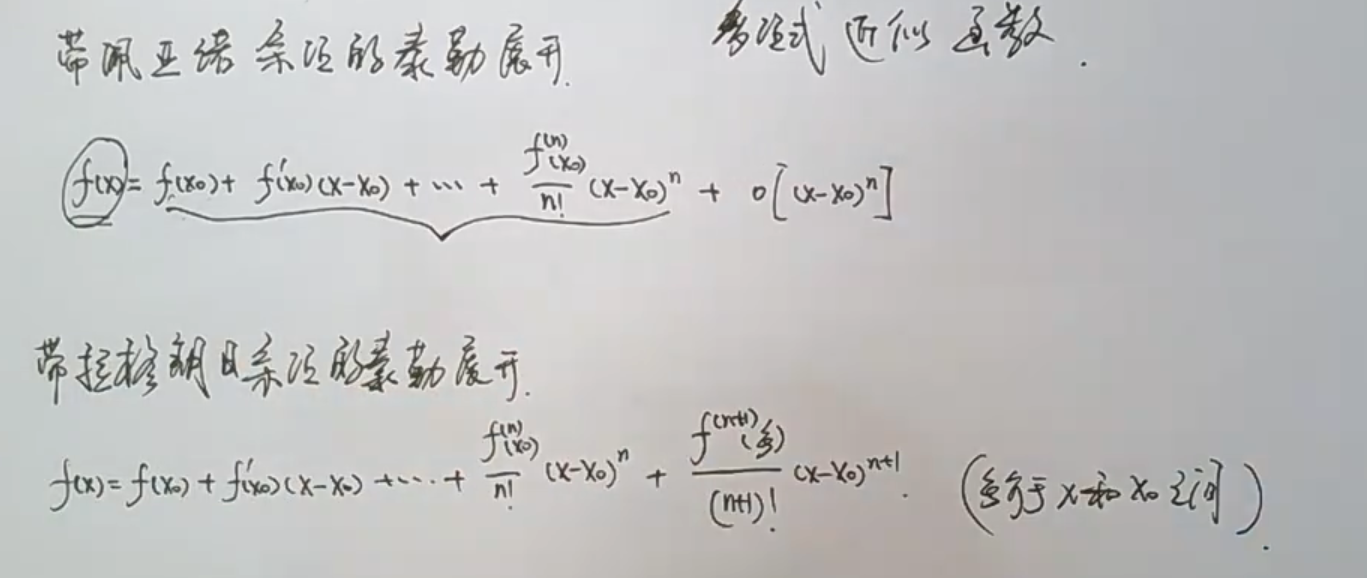 带佩亚诺余项的泰勒展开. 多项式近似函数.
f(x) = f(x₀) + f′(x₀)(x-x₀) + ⋯ + f⁽ⁿ⁾(x₀)/n! (x-x₀)ⁿ + o[(x-x₀)ⁿ]
带拉格朗日余项的泰勒展开.
f(x) = f(x₀) + f′(x₀)(x-x₀) + ⋯ + f⁽ⁿ⁾(x₀)/n! (x-x₀)ⁿ + f⁽ⁿ⁺¹⁾(ξ)/(n+1)! (x-x₀)ⁿ⁺¹. (ξ介于x和x₀之间).